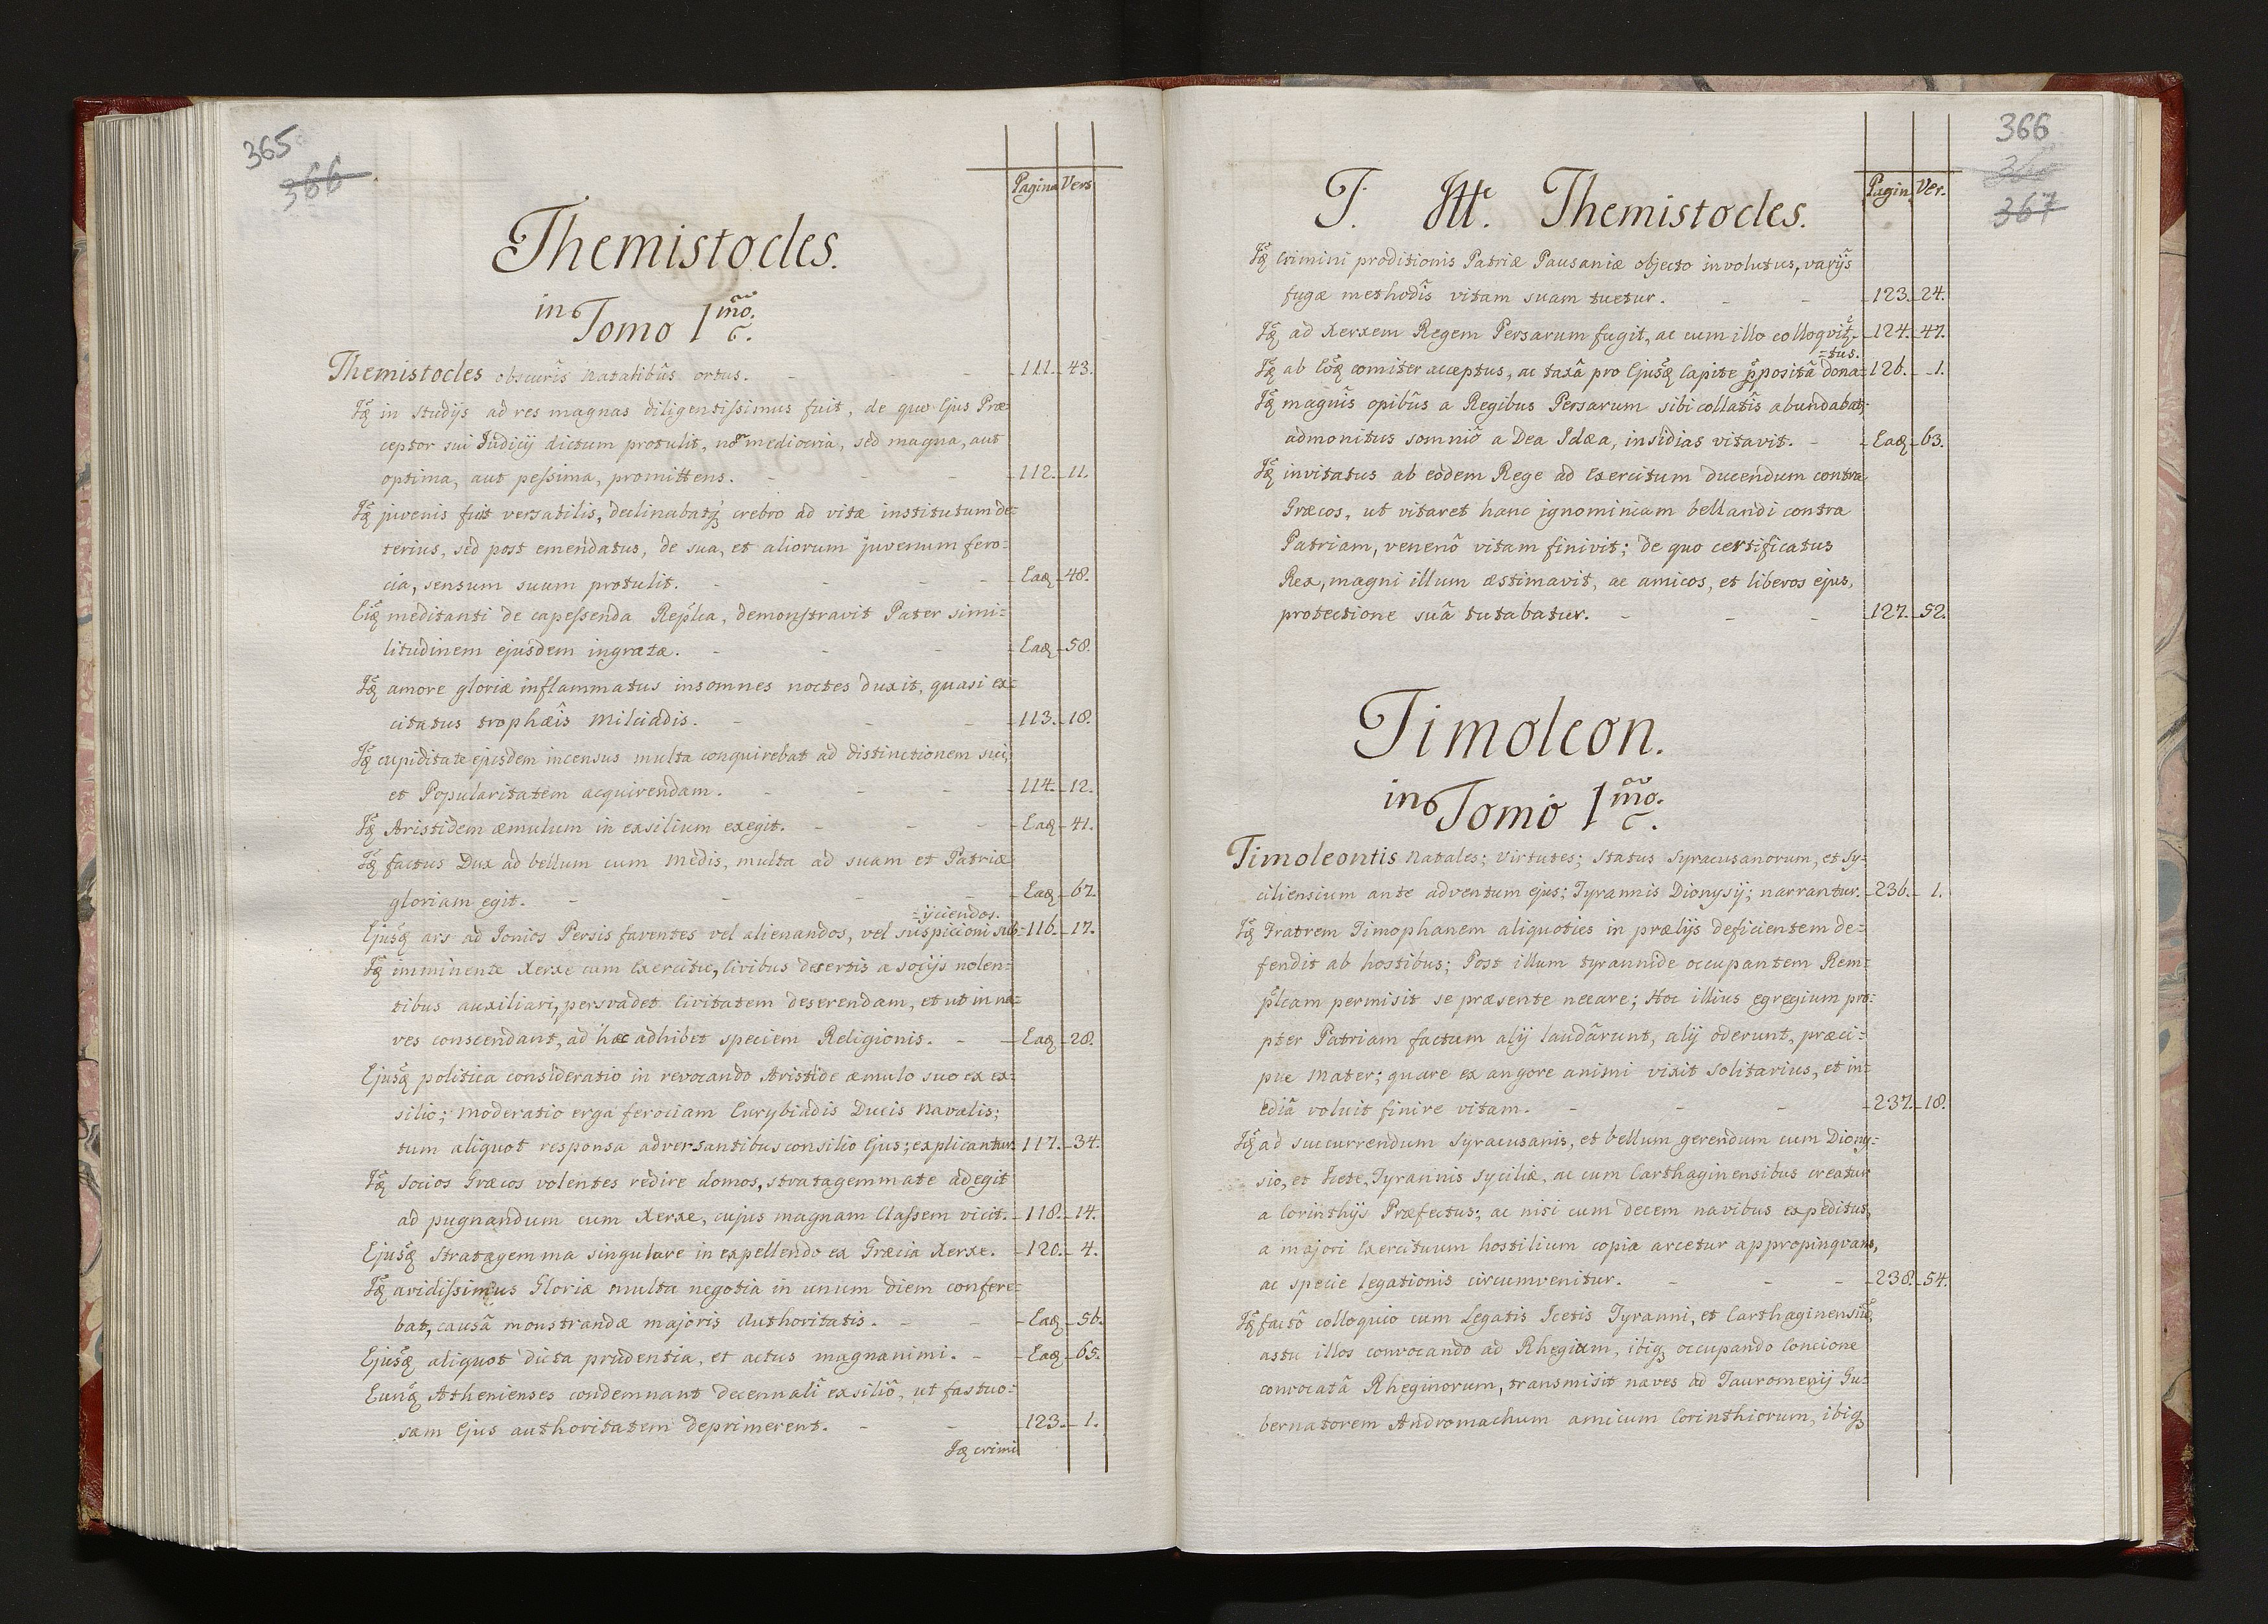 365
366
Pagina Vers
Themistocles.
in Tomo 1mo.
Themistocles obscuris Natalibûs ortus. - 111. 43.
Id~q in studijs ad res magnas diligentissimus fuit, de quo Ejus Præ-
ceptor sui Iudicij dictum protulit, no~ mediocria, sed magna, aut
optima, aut pessima, promittens. - 112. 11.
Id~q juvenis fuit versatilis, declinabatq~ crebro ad vitæ institutum de-
terius, sed post emendatus, de sua, et aliorum juvenum fero-
cia, sensum suum protulit. - Eaq~ 48.
Eiq~ meditanti de capessenda Rep~lca, demonstravit Pater simi-
litudinem ejusdem ingratæ. - Eaq~ 58.
Id~q amore gloriæ inflammatus insomnes noctes duxit, quasi ex-
citatus trophæîs Milciadis. - 113. 18.
Id~q cupiditate ejusdem incensus multa conquirebat ad distinctionem sui,
et Popularitatem acquirendam. - 114. 12.
Id~q Aristidem æmulum in exsilium exegit. - Eaq~ 41.
Id~q factus Dux ad bellum cum Medis, multa ad suam et Patriæ
gloriam egit. - Eaq~ 67.
=ijciendos.
Ejusq~ ars ad Ionios Persis faventes vel alienandos, vel suspicioni sub- 116. 17.
Id~q imminente Xerxe cum Exercitu, Civibus desertis a socijs nolen-
tibus auxiliari, persvadet Civitatem deserendam, et ut in na-
ves conscendant, ad hæc adhibet speciem Religionis. - Eaq~ 28.
Ejusq~ politica consideratio in revocando Aristide æmulo suo ex ex-
silio; Moderatio erga ferociam Eurybiadis Ducis Navalis;
tum aliquot responsa adversantibus consilio Ejus; explicantur. 117. 34.
Id~q Socios Græcos volentes redire domos, stratagemmate adegit
ad pugnandum cum Xerxe, cujus magnam Classem vicit. 118. 14.
Ejusq~ Stratagemma singulare in expellendo ex Græcia Xerxe. 120. 4.
Id~q avidissimus Gloriæ multa negotia in unum diem confere-
bat, causâ monstrandæ majoris Authoritatis. - Eaq~ 56.
Ejusq~ aliquot dicta prudentia, et actus magnanimi. - Eaq~ 65.
Eunq~ Athenienses condemnant decennali exsiliô, ut fastuo-
sam Ejus authoritatem deprimerent. - 123. 1.
Id~q crimi
366
367
Pagin. Ver.
T. Themistocles.
Id~q crimini proditionis Patriæ Pausaniæ objecto involutus, varijs
fugæ methodîs vitam suam tuetur. - 123. 24.
Id~q ad Xerxem Regem Persarum fugit, ac cum illo colloqvit~. 124. 47.
=tus.
Id~q ab Eoq~ comiter acceptus, ac taxâ pro Ejusq~ Capite p~positâ dona- 126. 1.
Id~q magnis opibûs a Regibus Persarum sibi collatîs abundabat,
admonitus somniô a Dea Idæa, insidias vitavit. - Eaq~ 63.
Id~q invitatus ab eodem Rege ad Exercitum ducendum contra
Græcos, ut vitaret hanc ignominiam bellandi contra
Patriam, venenô vitam finivit; de quo certificatus
Rex, magni illum æstimavit, ac amicos, et liberos ejus,
protectione suâ tutabatur. - 127. 52.
Timoleon.
in Tomo 1mo.
Timoleontis Natales; Virtutes; Status Syracusanorum, et Sy-
ciliensium ante adventum ejus; Tyrannis Dionysij; narrantur. 236. 1.
Id~q Fratrem Timophanem aliquoties in prælijs deficientem de-
fendit ab hostibus; Post illum tyrannide occupantem Rem-
p~lcam permisit se præsente necare; Hoc illius egregium pro-
pter Patriam factum alij laudârunt, alij oderunt, præci-
pue Mater; quare ex angore animi vixit Solitarius, et in-
ediâ voluit finire vitam. - 237. 18.
Id~q ad succurrendum Syracusanis, et bellum gerendum cum Diony-
sio, et Icete, Tyrannis Syciliæ, ac cum Carthaginensibus creatur
a Corinthijs Præfectus; ac nisi cum decem navibus expeditus,
a majori Exercituum hostilium copia arcetur appropinqvans,
ac specie legationis circumvenitur. - 238. 54.
Id~q factô colloquio cum Legatis Icetis Tyranni, et Carthaginensiu~,
astu illos convocando ad Rhegium, ibiq~ occupando Concione
convocatâ Rheginorum, transmisit naves ad Tauromenij Gu-
bernatorem Andromachum amicum Corinthiorum, ibiq~